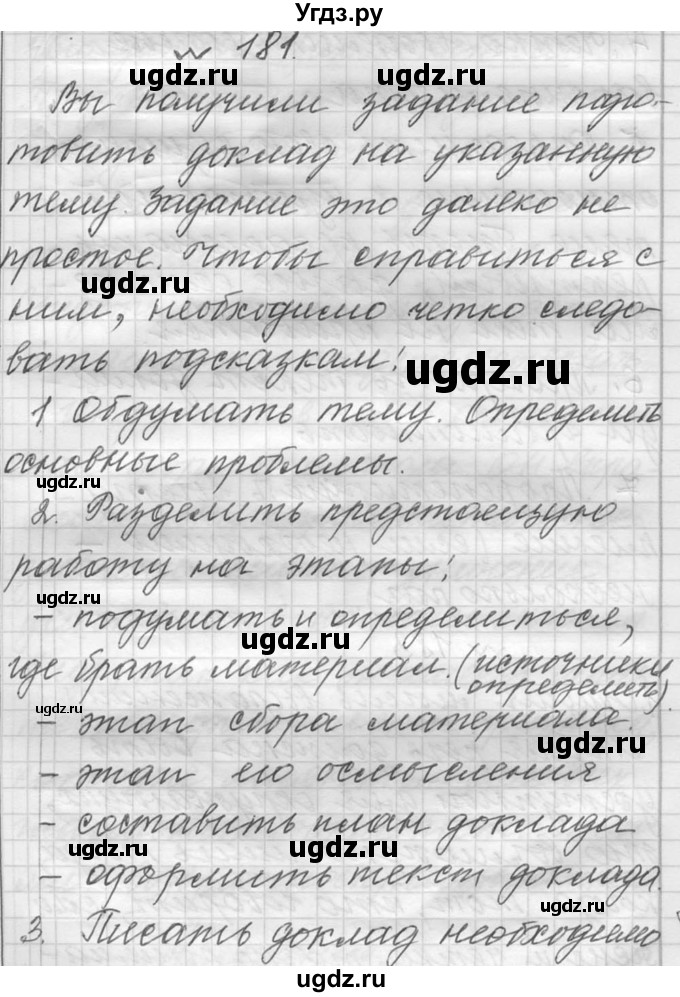 Угдз.ру
№ 181.
ugdz.ru ugdz.ru
Вы получили задание подго-
товить доклад на указанную
тему. Задание это далеко не
простое. Чтобы справиться с
ugdz.ru
ним, необходимо четко следо-
вать подсказкам:
ugdz.ru
1 Обдумать тему. Определить
основные проблемы.
ugdz.ru
2. Разделить предстоящую
работу на этапы:
- подумать и определиться,
ugdz.ru
где брать материал. (источники
определить).
ugdz.ru
- этап сбора материала.
ugdz.ru
- этап его осмысления
- составить план доклада
ugdz.ru ugdz.ru
- оформить текст доклада.
3. Писать доклад необходимо
ugdz.ru
ugdz.ru